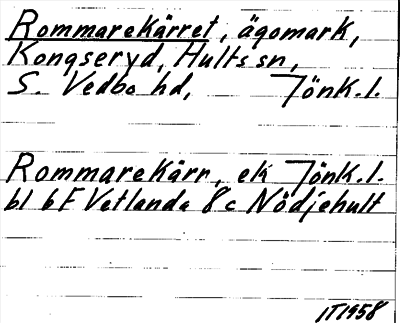 Rommarekärret, ägomark,
Kongseryd, Hults sn,
S. Vedbo hd, Jönk. l.
Rommarekärr, ek Jönk. l.
bl 6F Vetlanda 8c Nödjehult
IT1958